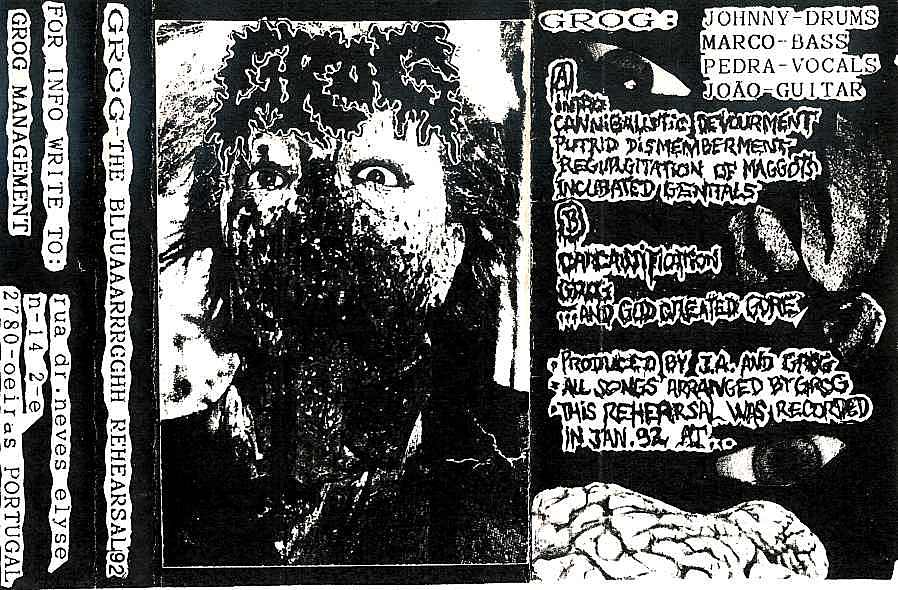 FOR INFO WRITE TO:
GROG MANAGEMENT
rua dr.neves elyse
n-14 2-e
2780-oeiras PORTUGAL
GROG-THE BLUUAAARRRGGHH REHEARSAL'92
GROG
GROG:
JOHNNY-DRUMS
MARCO-BASS
PEDRA-VOCALS
JOÃO-GUITAR
A
INTRO
CANNIBALISTIC DEVOURMENT
PUTRID DISMEMBERMENT
REGURGITATION OF MAGGOTS
INCUBATED GENITALS
B
GROG
...AND GOD CREATED GORE
• PRODUCED BY J.A. AND GROG
• ALL SONGS ARRANGED BY GROG
• THIS REHEARSAL WAS RECORDED
IN JAN. 92 AT...